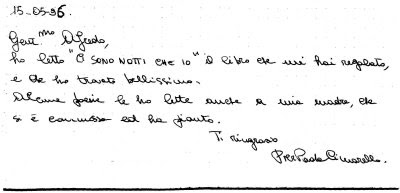 15-05-96.
Gent.mo Alfredo,
ho letto "CI SONO NOTTI CHE IO" il libro che mi hai regalato,
e che ho trovato bellissimo.
Alcune poesie le ho lette anche a mia madre, che
si è commossa ed ha pianto.
Ti ringrazio
Pier Paolo